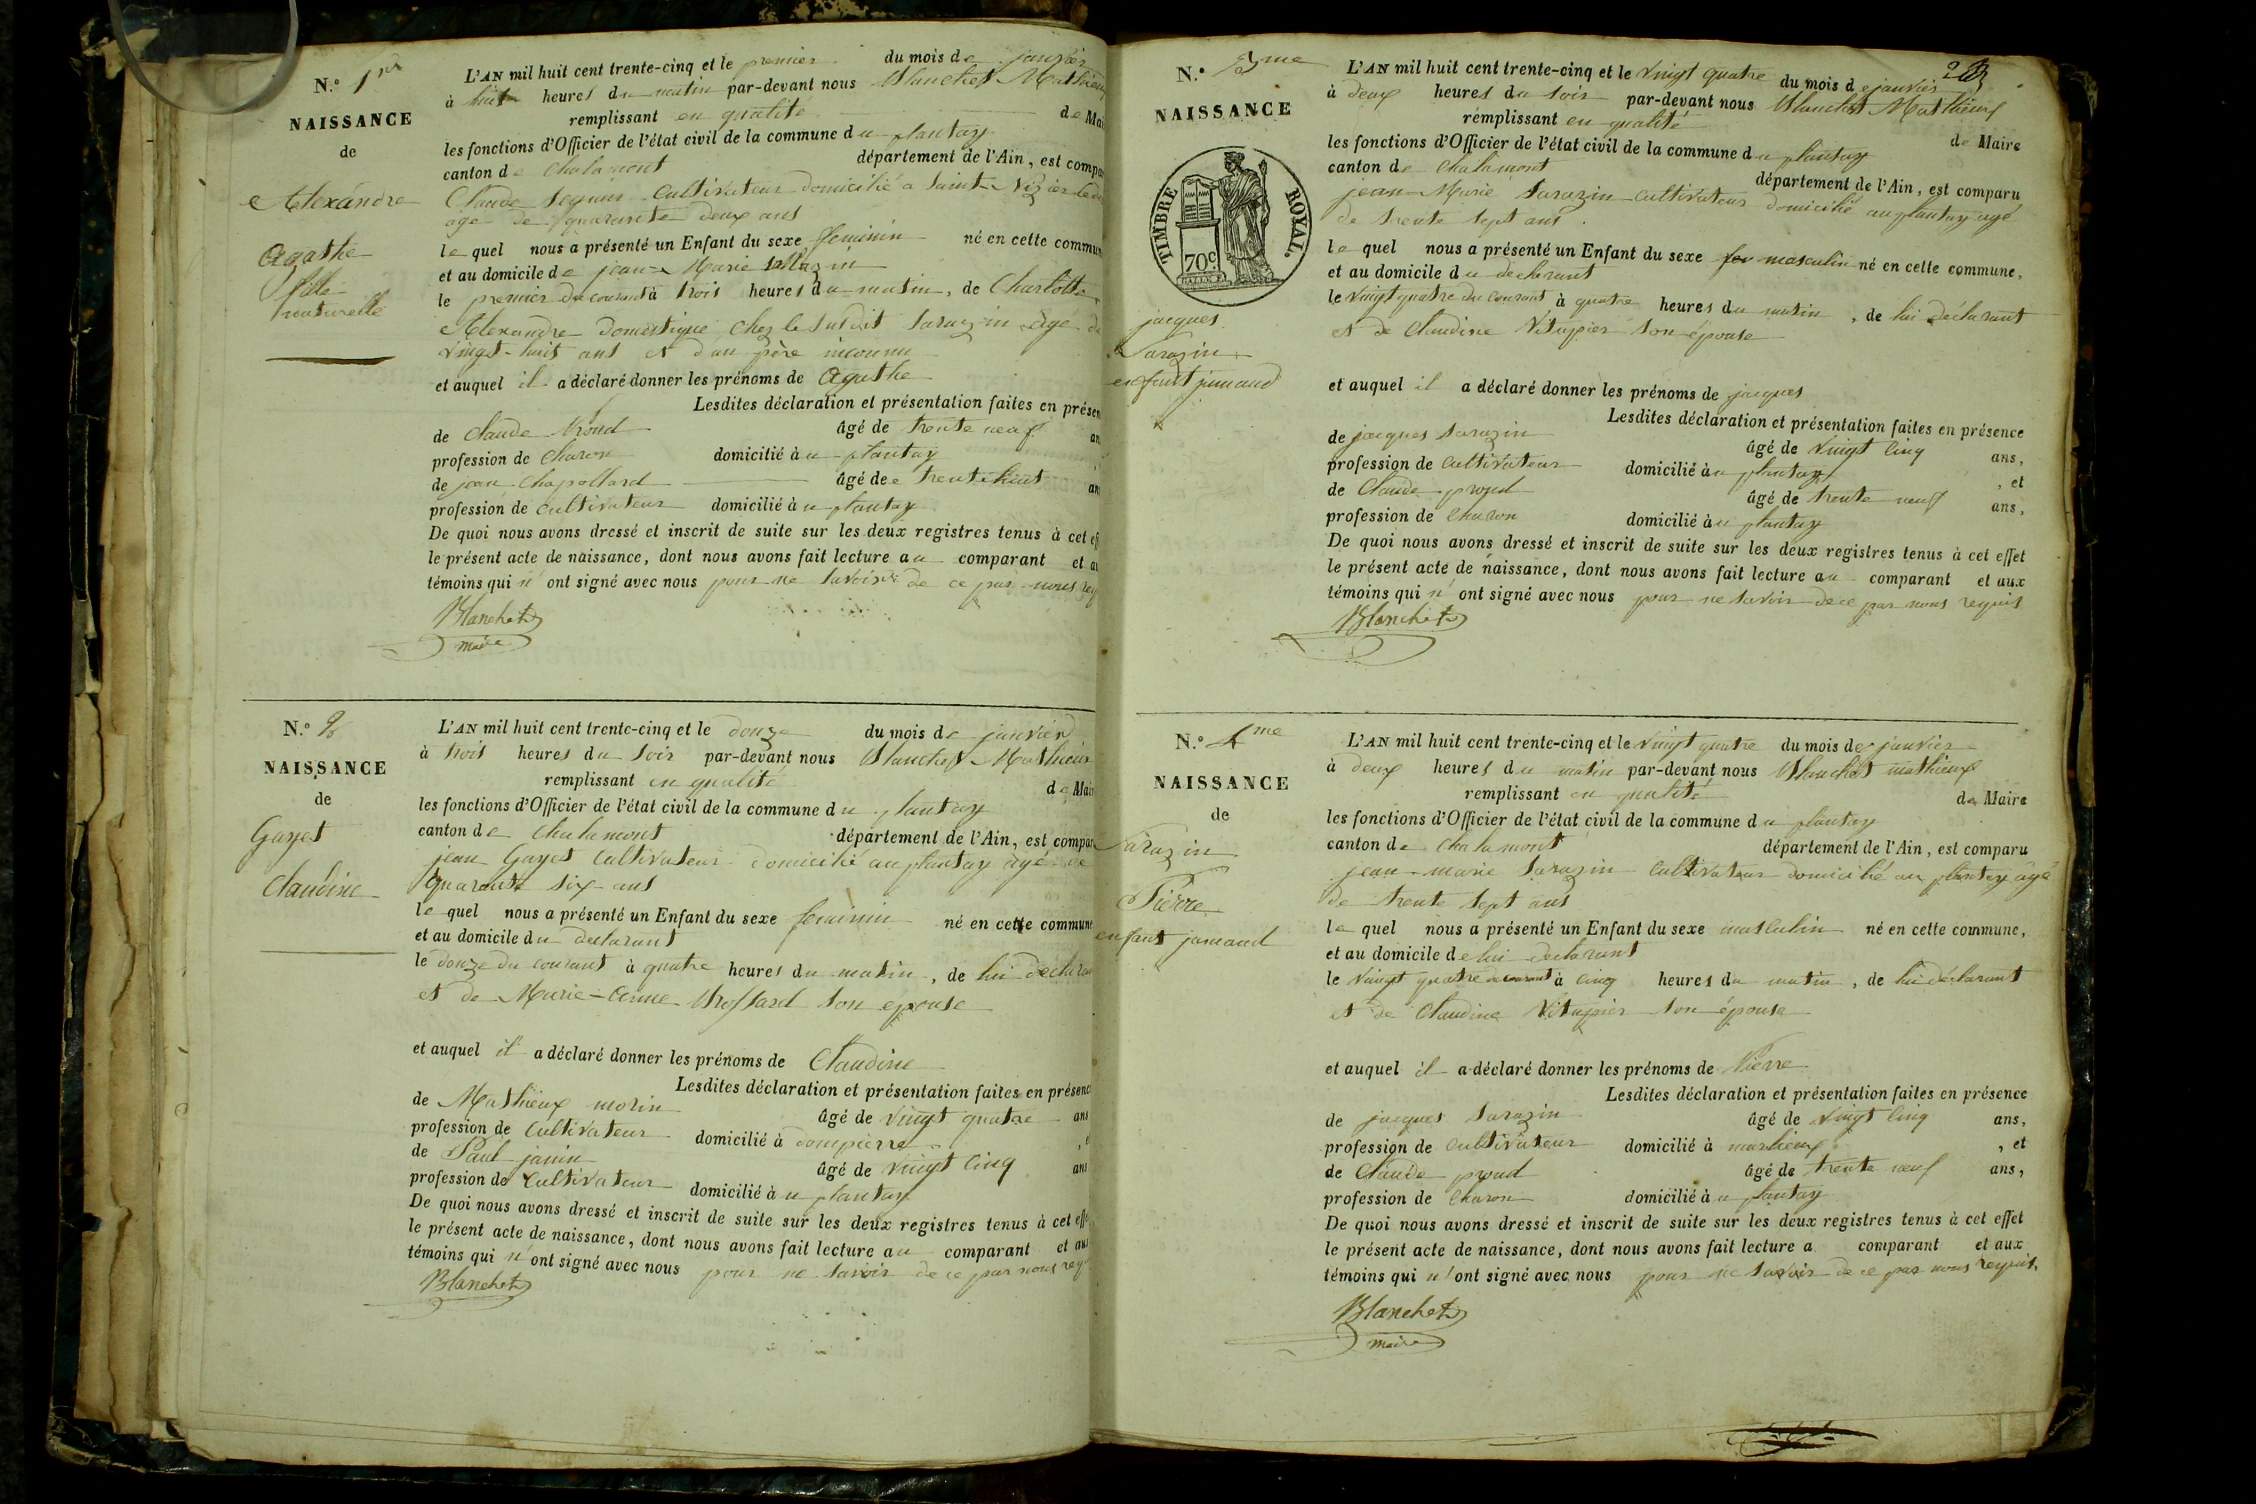 N.º 1er
NAISSANCE
de
Alexandre
Agathe
fille
naturelle
L'AN mil huit cent trente-cinq et le premier du mois de janvier
à huit heures du matin par-devant nous Blanchet Mathieux
remplissant en qualité de Mai
les fonctions d'Officier de l'état civil de la commune du plantay
canton de Chalamont département de l'Ain, est compa
Claude cultivateur domicilié a Saint Nizier
age de quarante deux ans
le quel nous a présenté un Enfant du sexe feminin né en cette commun
et au domicile de jean Marie Sarazin
le premier du courant à trois heures du matin, de Charlotte
Alexandre domestique chez le susdit Sarazin âgé de
vingt-huit ans et d'un père inconnu
et auquel il a déclaré donner les prénoms de Agathe
Lesdites déclaration et présentation faites en présen
de Claude Proud âgé de trente neuf an
profession de Charon domicilié à u plantay
de jean Chapolard âgé de trente huit an
profession de cultivateur domicilié à u plantay
De quoi nous avons dressé et inscrit de suite sur les deux registres tenus à cet eff
le présent acte de naissance, dont nous avons fait lecture au comparant et au
témoins qui n'ont signé avec nous pour ne savoir de ce par nous req
Blanchet
maire
N.º 2
NAISSANCE
de
Gayet
Claudine
L'AN mil huit cent trente-cinq et le douze du mois de janvier
à trois heures du soir par-devant nous Blanchet Mathieux
remplissant en qualité de Mair
les fonctions d'Officier de l'état civil de la commune du plantay
canton de Chalamont département de l'Ain, est compar
jean Gayet cultivateur domicilié au plantay âgé de
quarante six ans
le quel nous a présenté un Enfant du sexe feminin né en cette commune
et au domicile du declarant
le douze du courant à quatre heures du matin, de lui declaran
et de Marie-Anne Brossard son epouse
et auquel il a déclaré donner les prénoms de Claudine
Lesdites déclaration et présentation faites en présenc
de Mathieux morin âgé de vingt quatre ans
profession de Cultivateur domicilié à dompierre
de Paul janin âgé de vingt cinq ans
profession de cultivateur domicilié à u plantay
De quoi nous avons dressé et inscrit de suite sur les deux registres tenus à cet effe
le présent acte de naissance, dont nous avons fait lecture au comparant et aux
témoins qui n'ont signé avec nous pour ne savoir de ce par nous req
Blanchet
N.º 3me
NAISSANCE
TIMBRE ROYAL.
70c
jacques
Sarazin
enfant jumaud
L'AN mil huit cent trente-cinq et le vingt quatre du mois de janvier
à deux heures du soir par-devant nous Blanchet Mathieux
remplissant en qualité de Maire
les fonctions d'Officier de l'état civil de la commune du plantay
canton de Chalamont département de l'Ain, est comparu
jean-Marie Sarazin cultivateur domicilié au plantay agé
de trente sept ans
le quel nous a présenté un Enfant du sexe masculin né en cette commune,
et au domicile du declarant
le vingt quatre du courant à quatre heures du matin, de lui déclarant
et de Claudine Vitupier son épouse
et auquel il a déclaré donner les prénoms de jacques
Lesdites déclaration et présentation faites en présence
de jacques Sarazin âgé de vingt cinq ans,
profession de cultivateur domicilié à u plantay, et
de Claude proud âgé de trente neuf ans,
profession de Charon domicilié à u plantay
De quoi nous avons dressé et inscrit de suite sur les deux registres tenus à cet effet
le présent acte de naissance, dont nous avons fait lecture au comparant et aux
témoins qui n'ont signé avec nous pour ne savoir de ce par nous requis
Blanchet
N.º 4me
NAISSANCE
de
Sarazin
Pierre
enfant jumaud
L'AN mil huit cent trente-cinq et le vingt quatre du mois de janvier
à deux heures du matin par-devant nous Blanchet mathieux
remplissant en qualité de Maire
les fonctions d'Officier de l'état civil de la commune du plantay
canton de Chalamont département de l'Ain, est comparu
jean-marie Sarazin cultivateur domicilié au plantay âgé
de trente sept ans
le quel nous a présenté un Enfant du sexe masculin né en cette commune,
et au domicile de lui declarant
le vingt quatre du courant à cinq heures du matin, de lui déclarant
et de Claudine Vitupier son épouse
et auquel il a déclaré donner les prénoms de Pierre
Lesdites déclaration et présentation faites en présence
de jacques Sarazin âgé de vingt cinq ans,
profession de cultivateur domicilié à marlieux, et
de Claude proud âgé de trente neuf ans,
profession de Charon domicilié à u plantay
De quoi nous avons dressé et inscrit de suite sur les deux registres tenus à cet effet
le présent acte de naissance, dont nous avons fait lecture a comparant et aux
témoins qui n'ont signé avec nous pour ne savoir de ce par nous requis.
Blanchet
maire